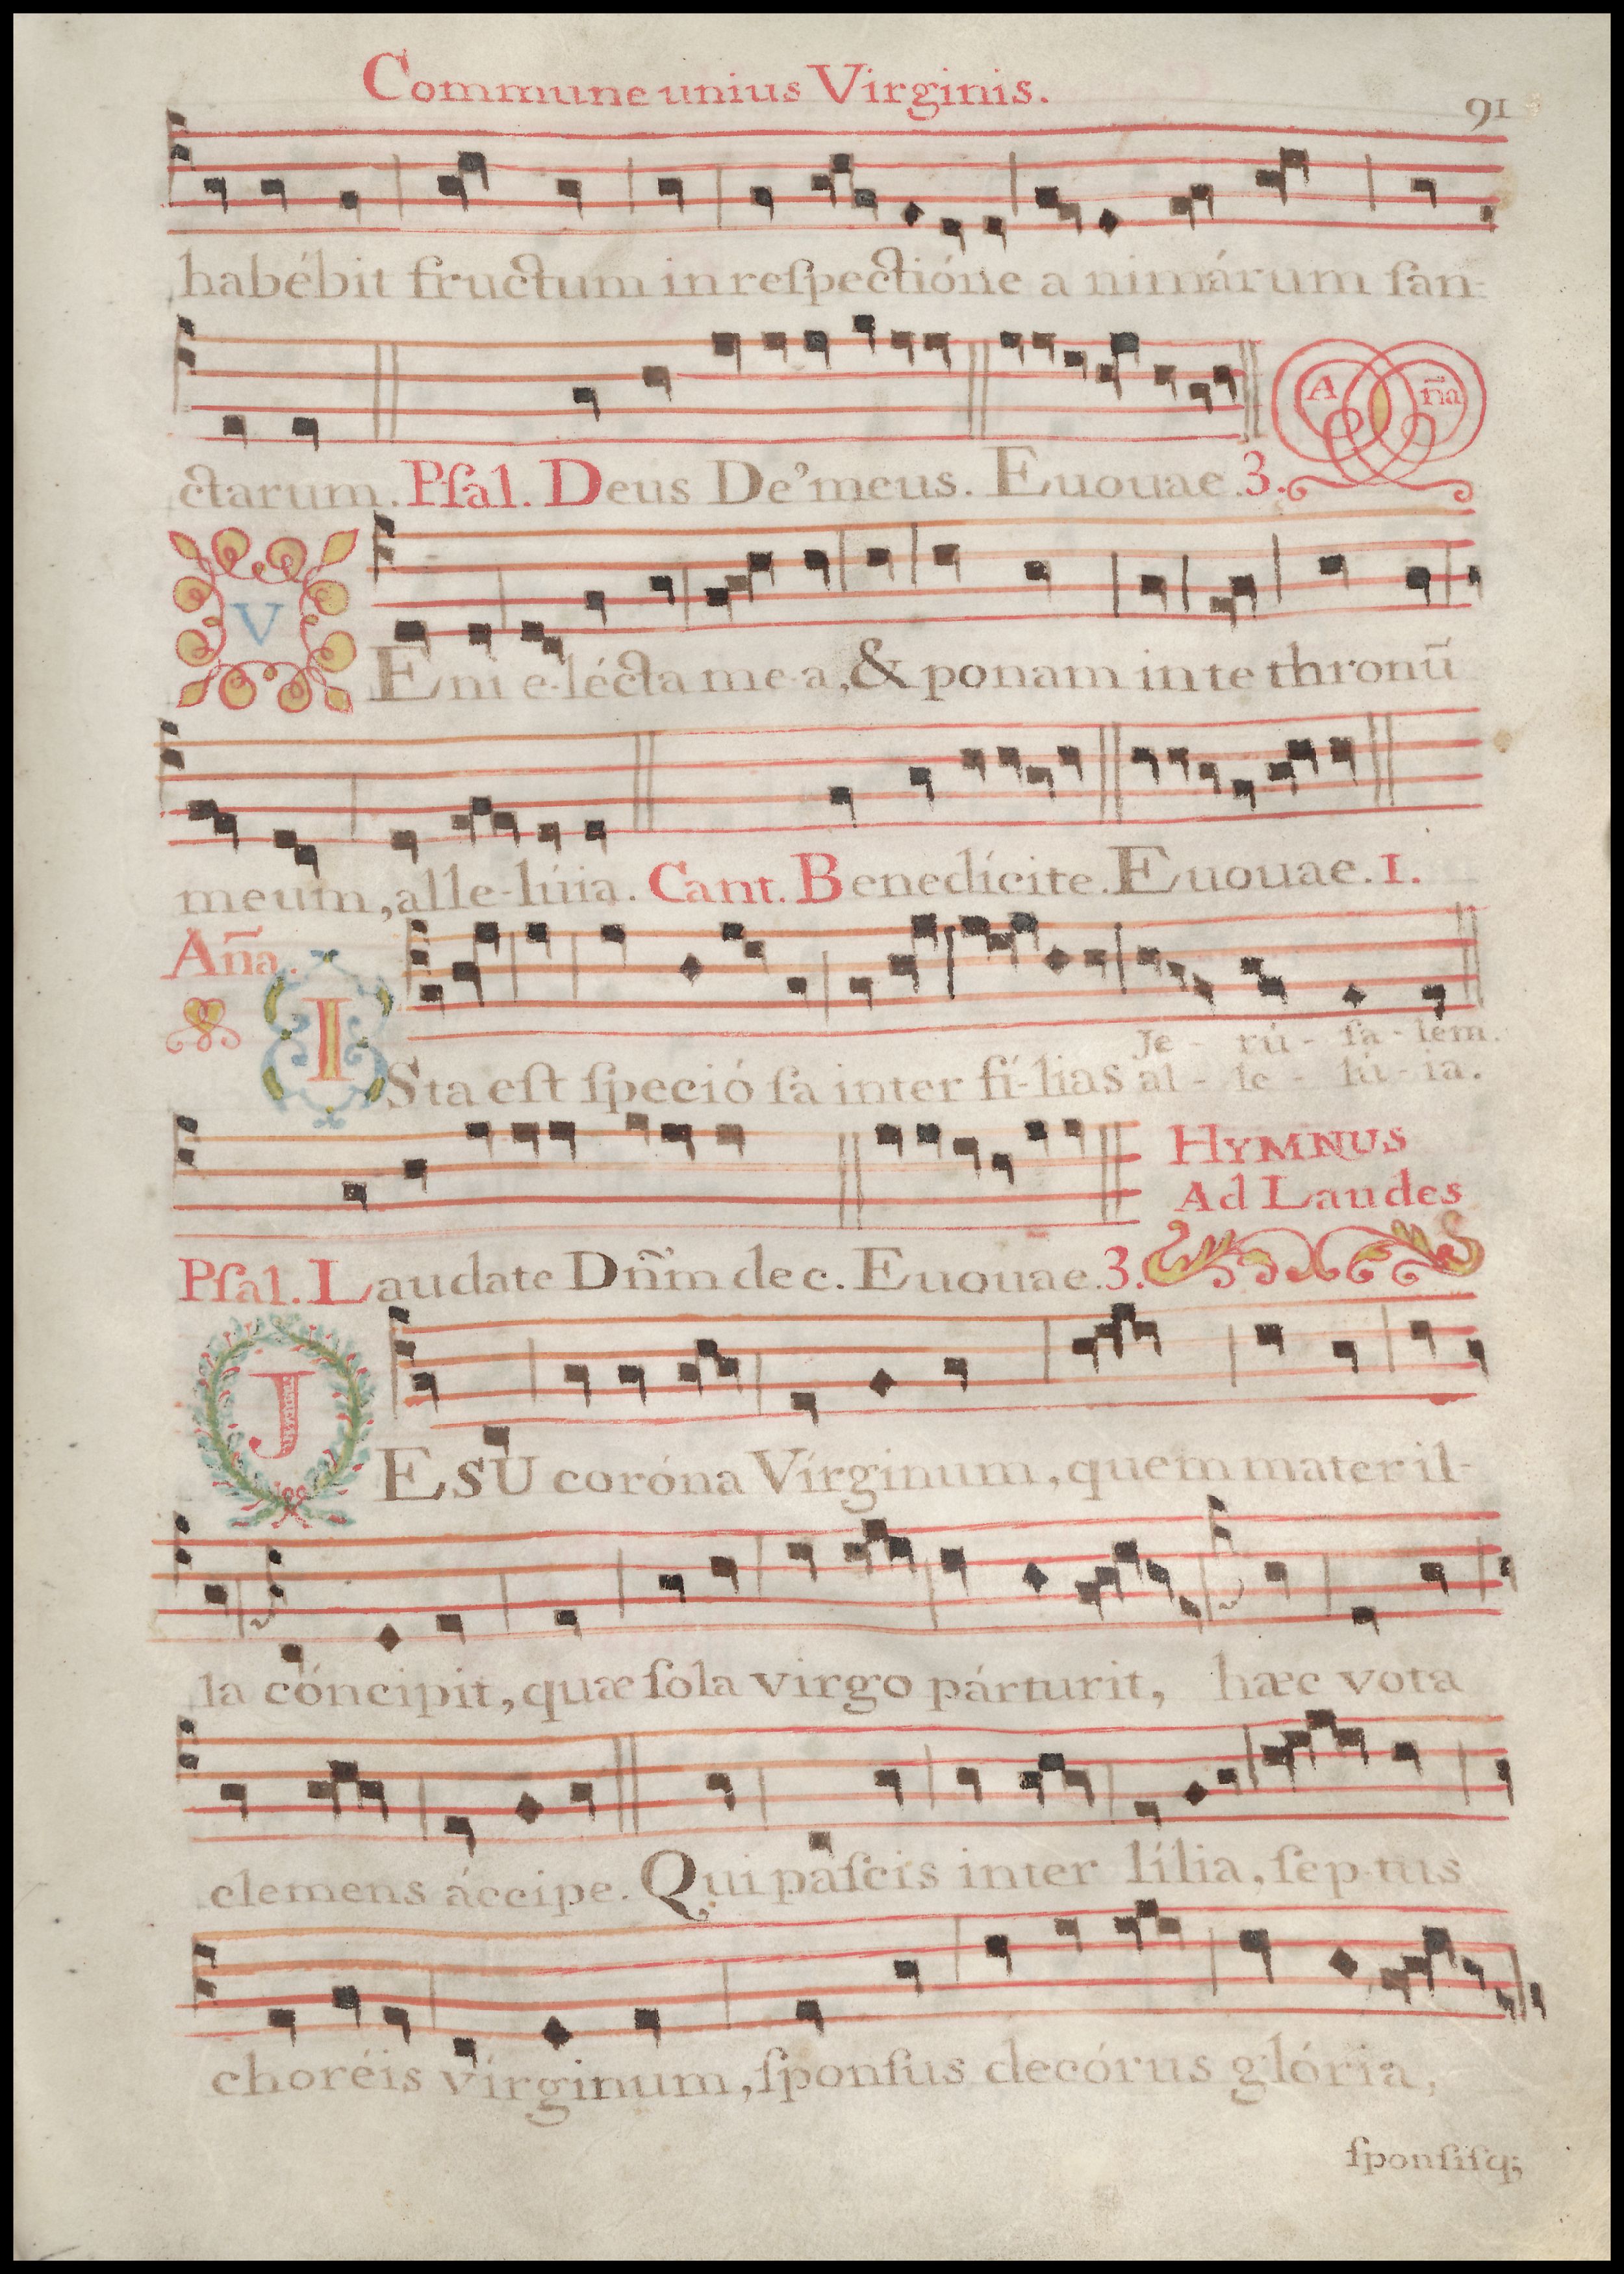 Commune unius Virginis.
91
habébit fructum in reſpectióne a nimárum ſan-
ctarum. Pſal. Deus De' meus. Euouae. 3. Añа
VEni e-lécta me-a, & ponam in te thronū
meum, alle-lúia. Cant. Benedícite. Euouae. 1.
Aña.
Je - rú - ſa - lem.
ISta eſt ſpeció ſa inter fí-lias al - le - lú - ia.
HYMNUS
Ad Laudes
Pſal. Laudate Dñ̃m de c. Euouae. 3.
JESU coróna Vírginum, quem mater il-
la cóncipit, quæ ſola virgo párturit, hæc vota
clemens áccipe. Qui paſcis inter lília, ſep-tus
choréis vírginum, ſponſus decórus glória,
ſponſiſq;